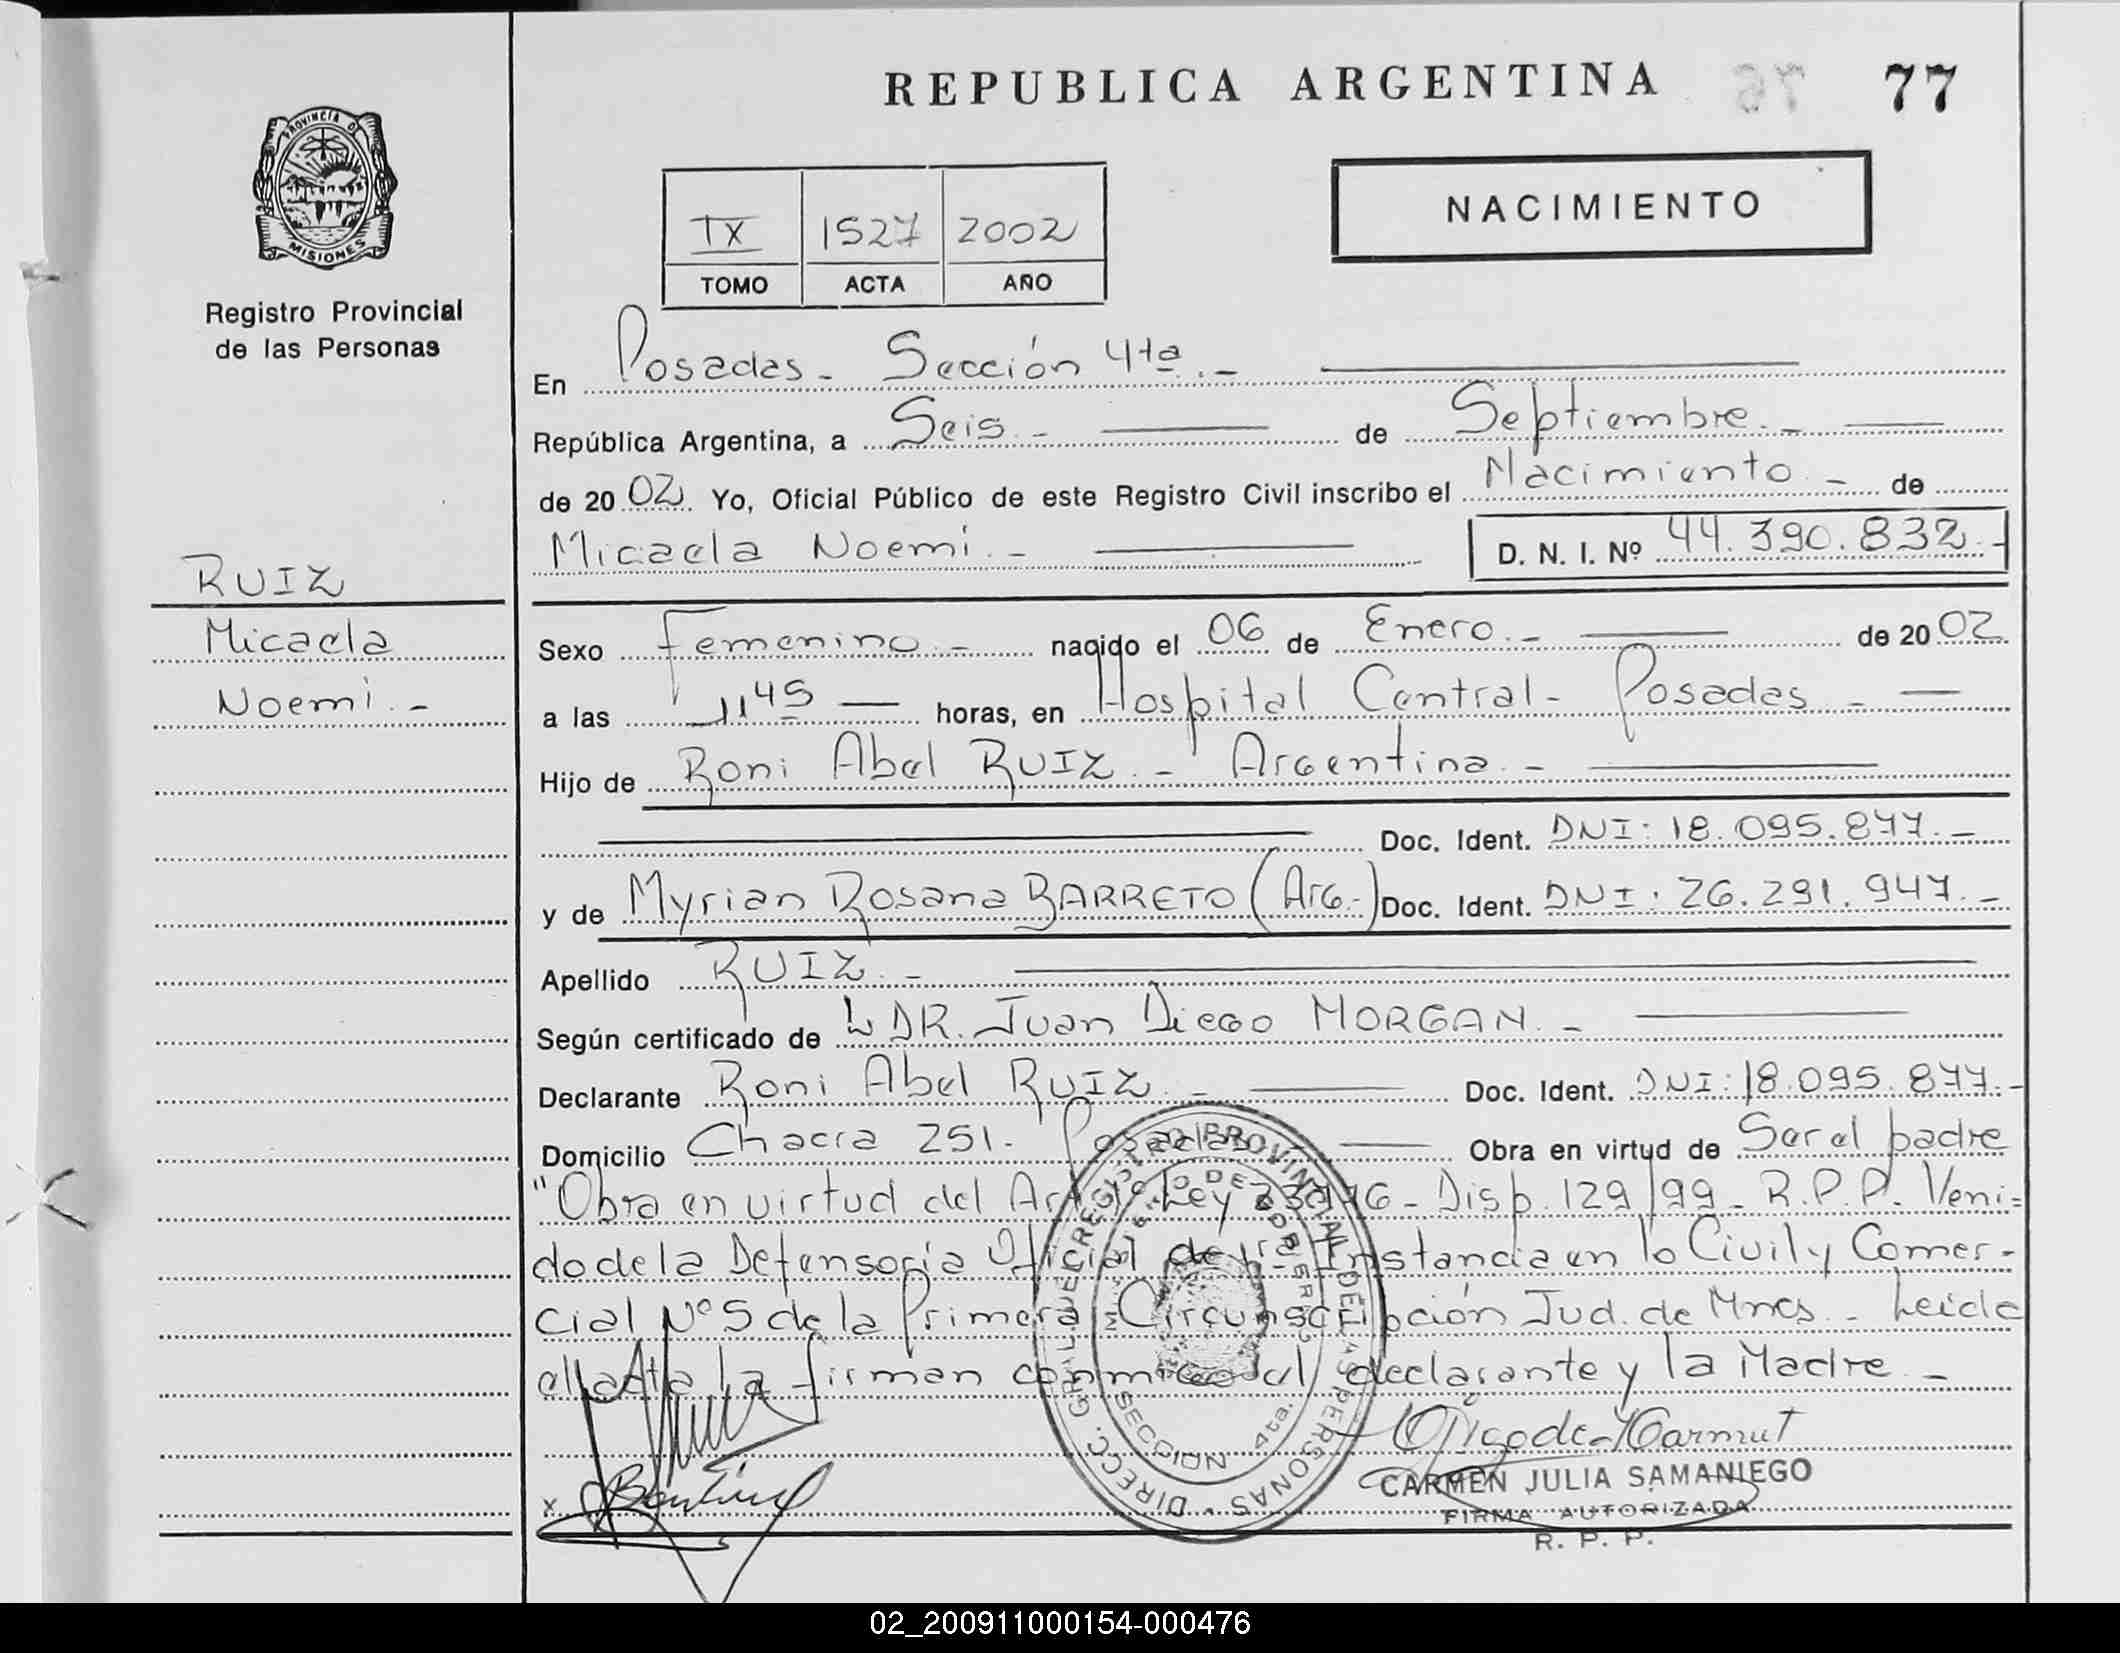 REPUBLICA ARGENTINA
76 77
PROVINCIA DE
MISIONES
Registro Provincial
de las Personas
NACIMIENTO
IX 1527 2002
TOMO ACTA AÑO
En Posadas - Sección 4ta. -
República Argentina, a Seis - de Septiembre. -
de 20 02. Yo, Oficial Público de este Registro Civil inscribo el Nacimiento - de
Micaela Noemi. - D. N. I. Nº 44.390.832. -
RUIZ
Micaela
Noemi. -
Sexo Femenino. - nacido el 06 de Enero. - de 20 02
a las 11 45 horas, en Hospital Central - Posadas -
Hijo de Roni Abel RUIZ. - Argentina. -
Doc. Ident. DNI: 18.095.877. -
y de Myrian Rosana BARRETO (Arg.-) Doc. Ident. DNI: 26.291.947. -
Apellido RUIZ. -
Según certificado de DR. Juan Diego MORGAN. -
Declarante Roni Abel RUIZ. - Doc. Ident. DNI: 18.095.877. -
Domicilio Chacra 251. Posadas Obra en virtud de Ser el padre
"Obra en virtud del Ley - Disp. 129/99 - R.P.P. Veni=
do de la Defensoría Oficial de 1ra Instancia en lo Civil y Comer-
cial Nº 5 de la Primera Circunscripción Jud. de Mnes. - Leida
el Acta la firman conmigo el declarante y la Madre -
DIRECC. GRAL. DEL REGISTRO PROVINCIAL DE LAS PERSONAS
SECCION 4ta.
CARMEN JULIA SAMANIEGO
FIRMA AUTORIZADA
R. P. P.
02_200911000154-000476